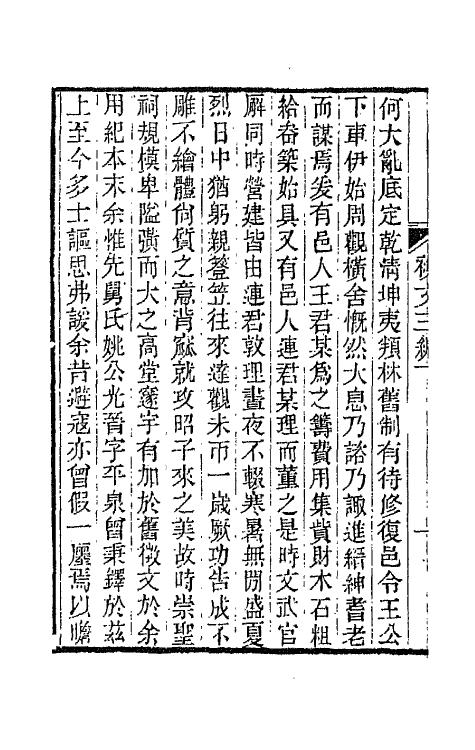 何大亂底定乾淸坤夷頖林舊制有待修復邑令王公
下車伊始周觀橫舍慨然大息乃諮乃諏進縉紳耆老
而謀焉爰有邑人王君某爲之籌費用集貲財木石粗
給畚築始具又有邑人連君某理而董之是時文武官
廨同時營建皆由連君敦理晝夜不輟寒暑無閒盛夏
烈日中猶躬親簦笠往來逹觀未帀一歲厥功吿成不
雕不繪體尙質之意肯綠就攻昭子來之美故時崇聖
祠規模卑隘彍而大之高堂邃宇有加於舊徵文於余
用紀本末余惟先舅氏姚公光晉字平泉曾秉鐸於茲
上至今多士謳思弗諼余昔避寇亦曾假一廛焉以瞻